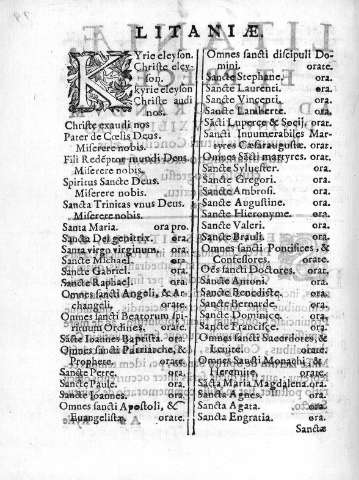 LITANIÆ.
KYrie eleyson.
Christe eley-
son.
kyrie eleyson
Christe audi
nos.
Christe exaudi nos
Pater de Cœlis Deus.
Miserere nobis.
Fili Redẽptor mundi Deus.
Miserere nobis.
Spiritus Sancte Deus.
Miserere nobis.
Sancta Trinitas vnus Deus.
Miserere nobis.
Santa Maria. ora pro.
Sancta Dei genitrix. ora.
Santa virgo virginum. ora.
Sancte Michael. ora.
Sancte Gabriel. ora.
Sancte Raphael. ora.
Omnes sancti Angeli, & Ar
changeli. orate.
Omnes sancti Beatorum spi-
rituum Ordines. orate.
Sãcte Ioannes Baptista. ora.
Omnes sancti Patriarchæ, &
Prophetæ. orate.
Sancte Petre. ora.
Sancte Paule. ora.
Sancte Ioannes. ora.
Omnes sancti Apostoli, &
Euangelistæ. orate.
Omnes sancti discipuli Do-
mini. orate.
Sancte Stephane. ora.
Sancte Laurenti. ora.
Sancte Vincenti. ora.
Sancte Lamberte. ora.
Sãcti Luperce & Socij. orat.
Sancti Innumerabiles Mar-
tyres Cæsaraugustæ. orat.
Omnes Sãcti martyres. orat.
Sancte Syluester. ora.
Sancte Gregori. ora.
Sancte Ambrosi. ora.
Sancte Augustine. ora.
Sancte Hieronyme. ora.
Sancte Valeri. ora.
Sancte Brauli. ora.
Omnes sancti Pontifices, &
Confessores. orate.
Oẽs sancti Doctores. orat.
Sancte Antoni. ora.
Sancte Benedicte. ora.
Sancte Bernarde. ora.
Sancte Dominice. ora.
Sancte Francisce. ora.
Omnes sancti Sacerdotes, &
Leuitæ. orate.
Omnes Sancti Monachi, &
Heremitæ. orate.
Sãcta Maria Magdalena. ora.
Sancta Agnes. ora.
Sancta Agata. ora.
Sancta Engratia. ora.
Sanctæ